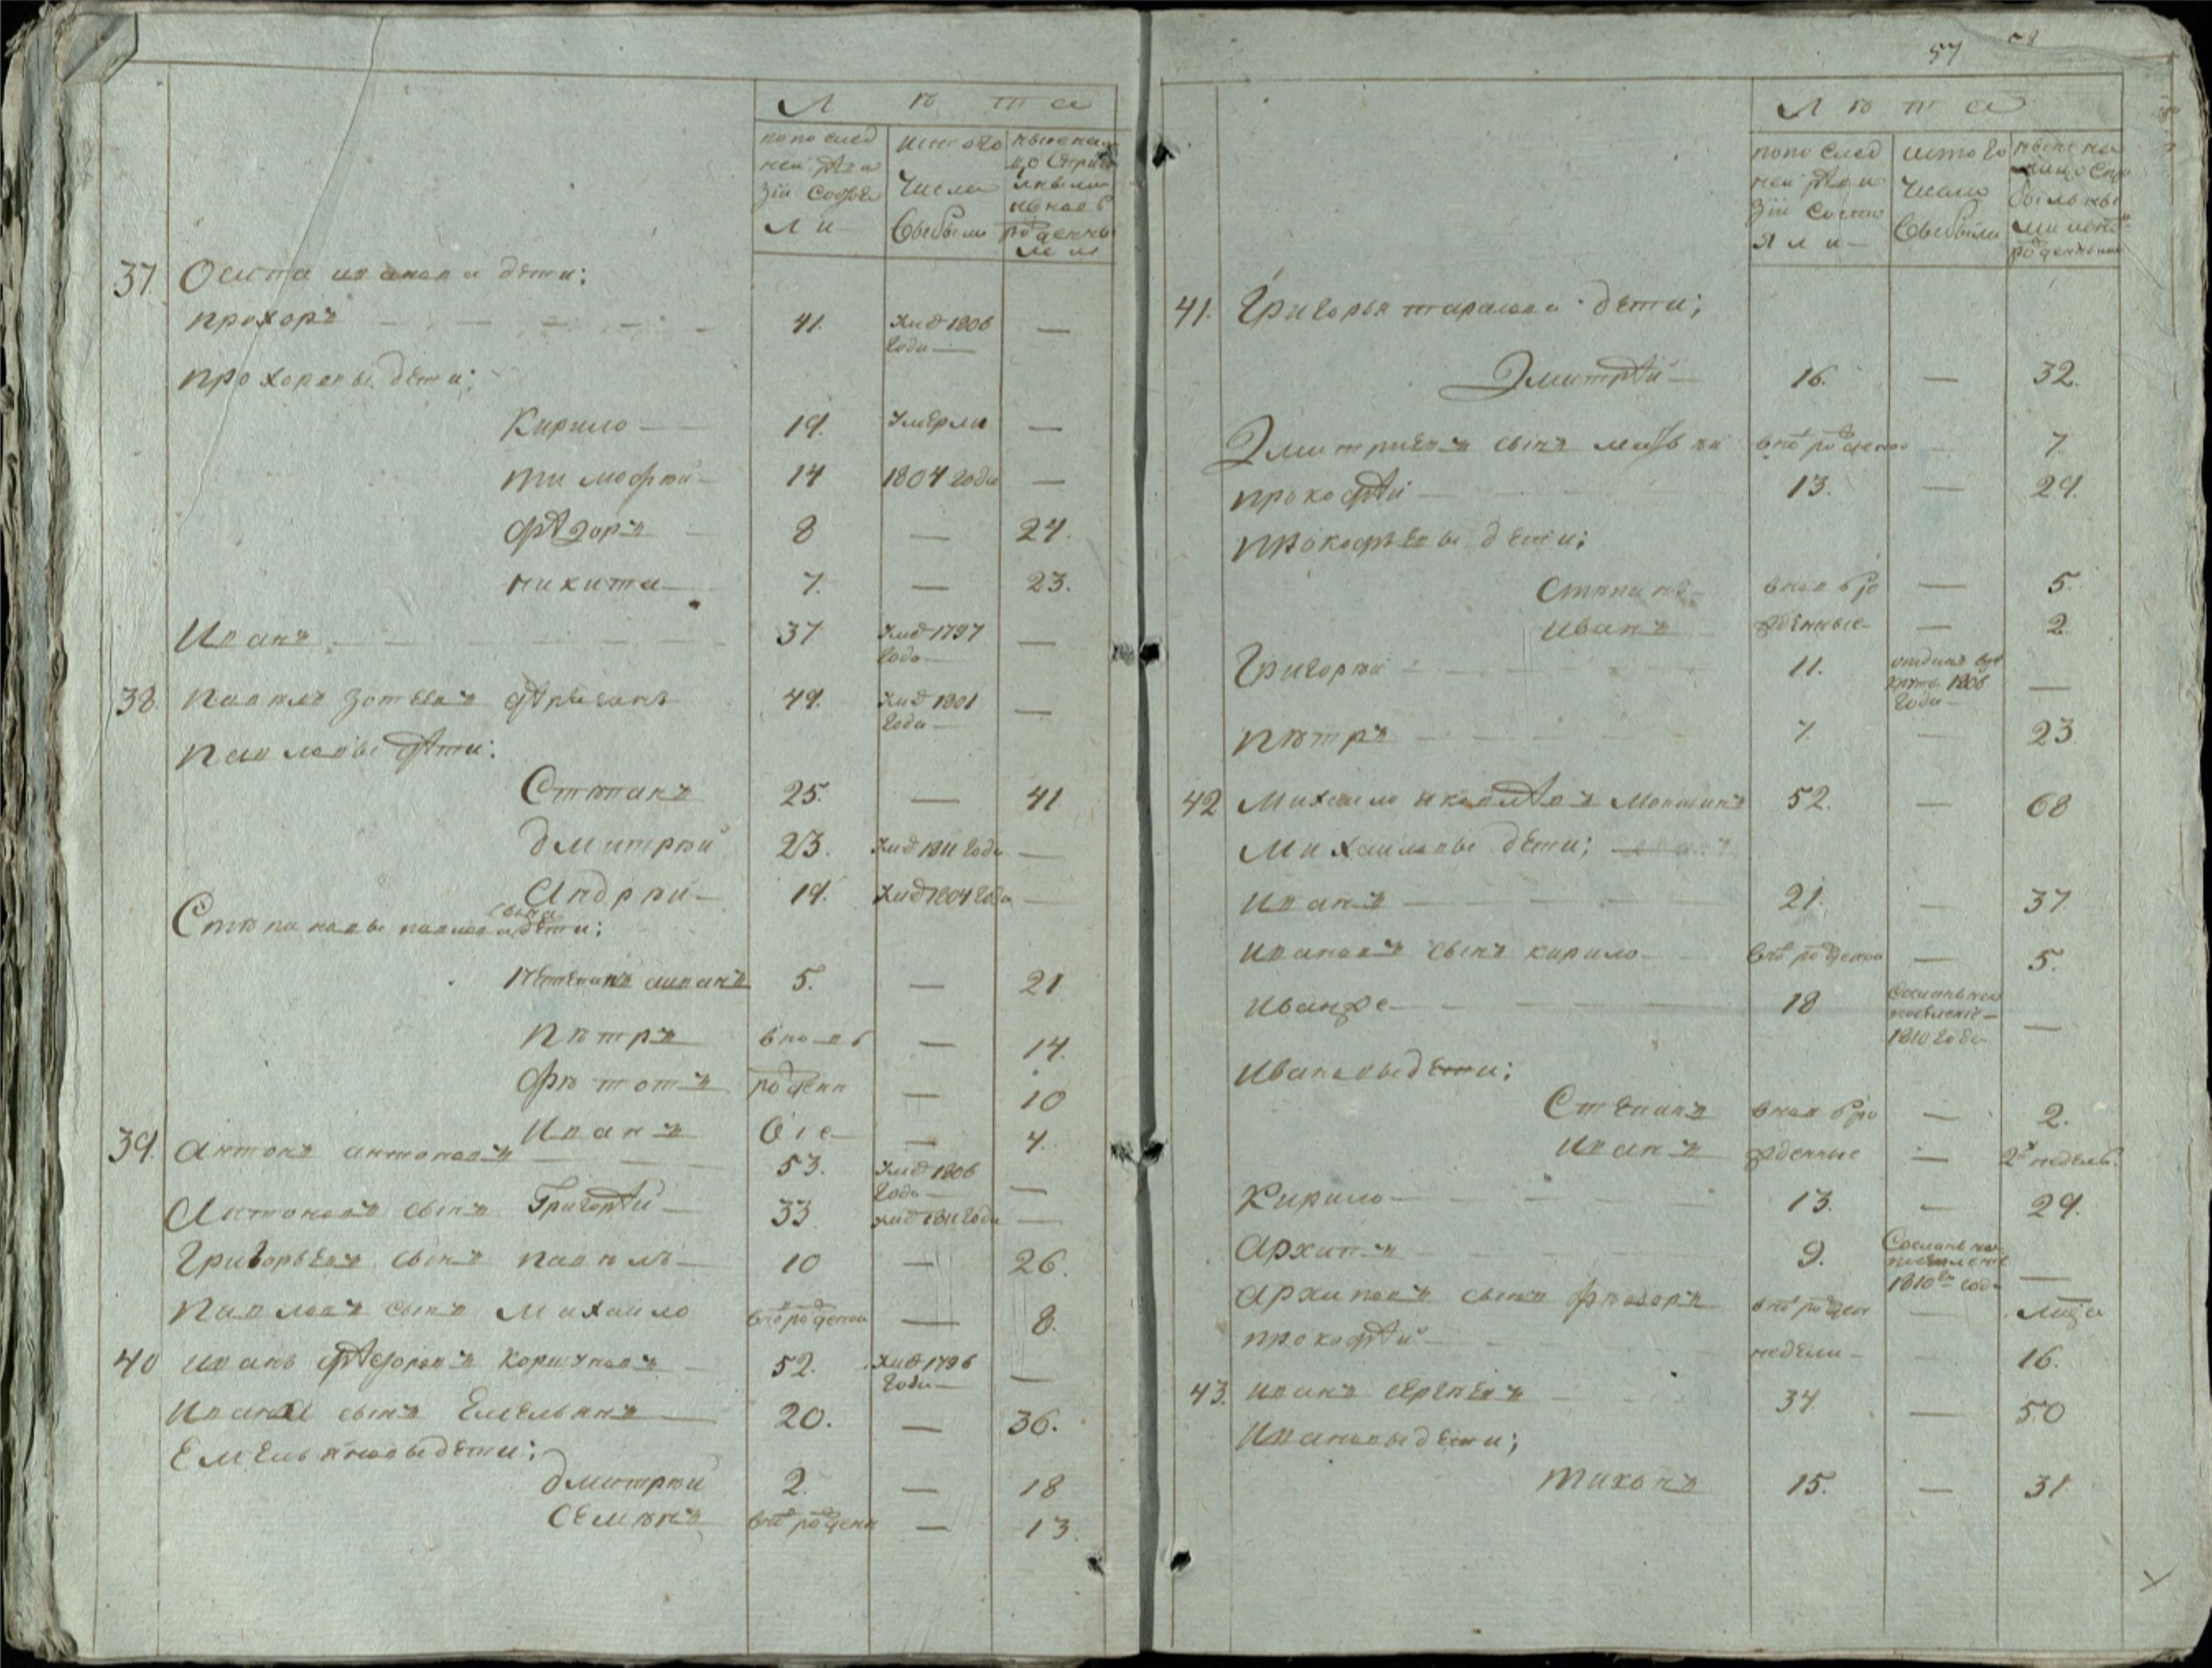 Лѣта
по послед
ней реви
зіи состоя
ли
ис того
числа
выбыло
ныне на
лицо с при
былыми
и вновь
рожденны
ми
37. Осипа иванова дети;
прохоръ — 41. умъ 1806
года — —
прохоровы дети;
Кирило — 19. умерли —
тимофѣй — 14 1804 года —
федоръ — 8 — 24.
никита — 7. — 23.
Иванъ — 37 умъ 1797
года — —
38. павилъ зотѣевъ 49. умъ 1801
года — —
Павловы дети:
Стѣпанъ 25. — 41
дмитрѣй 23. умъ 1811 года —
Андрѣй — 19. умъ 1804 года —
Стѣпановы павлова сына дети;
иванъ 5. — 21
Пѣтръ вновь — 14.
Фѣтотъ рожден — 10
Иванъ ные — — 4.
39. Антонъ антоновъ — 53. умъ 1806
года — —
Антоновъ сынъ Григорей — 33 умъ 1811 года —
Григорьевъ сынъ павѣлъ — 10 — 26.
Павловъ сынъ Михайло вно рожденои — 8.
40 Иванъ федоровъ 52. умъ 1796
года — —
Иванов сынъ Емельянъ — 20. — 36.
Емельяновы дети;
дмитрѣй 2. — 18
Семѣнъ вно рожден — 13.
57
Лѣта
по послед
ней реви
зіи состо
яли —
ис того
числа
выбыло
ныне на
лицо с при
былыми
и вно
рожденными
41. Григорья тарасова дети;
Дмитрей — 16. — 32.
Дмитриевъ сынъ матвѣй вно рожденой — 7.
прокофей — 13. — 29.
прокофьевы дети;
Стѣпанъ — вновь ро — 5.
иванъ жденные — — 2.
Григорѣй — 11. отданъ в рѣ
круты 1806
года — —
Пѣтръ — 7. — 23
42 Михайло яковлевъ 52. — 68
Михайловы дети;
Иванъ — 21. — 37.
Ивановъ сынъ кирило — вно рожденои — 5.
Иванже — 18 Сосланъ на
поселение —
1810 года —
Ивановы дети;
Степанъ вновь ро — 2.
Иванъ жденные — 2х недель.
Кирило — 13. — 29.
Архипъ — 9. Сосланъ на
поселение
1810го года —
Архиповъ сынъ фѣдоръ вно рожден —
прокофей — недели — — 16.
43. Иванъ сергѣевъ — 34. — 50
Ивановы дети;
тихонъ 15. — 31